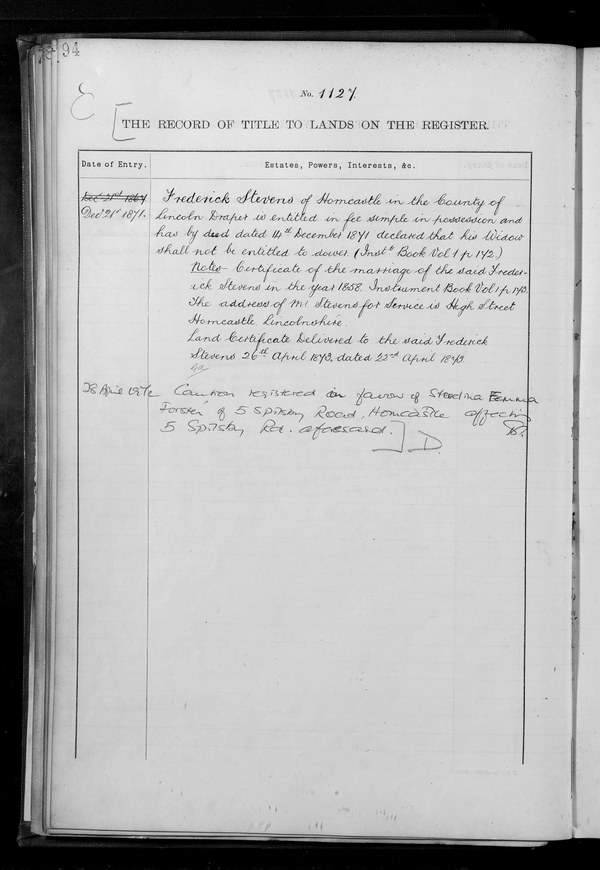 94
No. 1127
THE RECORD OF TITLE TO LANDS ON THE REGISTER.
Date of Entry.
Estates, Powers, Interests, &c.
Decr 21st 1867
Decr 21st 1871.
Frederick Stevens of Horncastle in the County of
Lincoln Draper is entitled in fee simple in possession and
has by deed dated 14th December 1871 declared that his Widow
shall not be entitled to dower. (Instt Book Vol 1 p 142.)
Note - Certificate of the marriage of the said Freder-
ick Stevens in the year 1858. Instrument Book Vol 1 p 143.
The address of Mr Stevens for Service is High Street
Horncastle Lincolnshire.
Land Certificate Delivered to the said Frederick
Stevens 26th April 1873. dated 22nd April 1873
28 April 1972
Caution registered in favour of Emma
Forster of 5 Spilsby Road, Horncastle affecting
5 Spilsby Rd. aforesaid.] D.